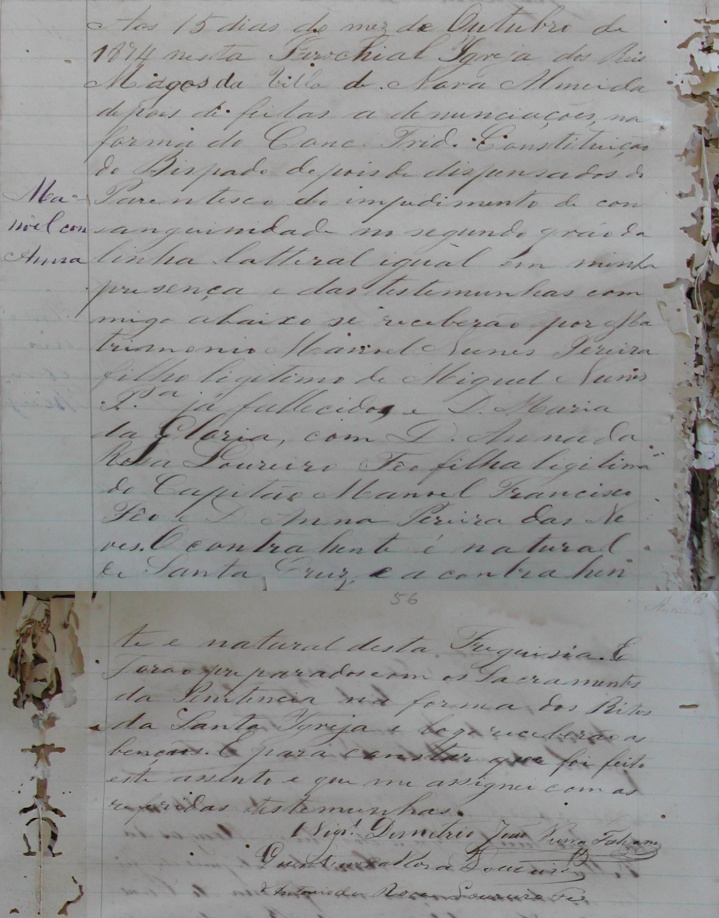 Aos 15 dias do mez de Outubro de
1874 nesta Parochial Igreja dos Reis
Magos da Villa de Nova Almeida
depois de feitas a denunciações, na
forma do Conc. Trid. Constituição
do Bispado depois de dispensados do
Parentesco do impedimento de con
sanguinidade no segundo gráo da
linha latteral igual em minha
presença e das testemunhas com
migo abaixo se receberão por Ma
trimonio Manoel Nunes Pereira
filho legitimo de Miguel Nunes
P.ra já fallecido, e D. Maria
da Gloria, com D. Anna da
Rosa Loureiro Feo filha legitima
do Capitão Manoel Francisco
Feo e D. Anna Pereira das Ne
ves. O contrahente é natural
de Santa Cruz, e a contrahen
Ma=
noel com
Anna
56
te e natural desta Freguisia. E
forão preparados com os Sacramentos
da Penitencia na forma dos Ritos
da Santa Igreja e logo receberão as
bençãos. E para constar que foi feito
este assento e que me assignei com as
referidas testemunhas.
O Vigr.º Demetrio
Loureiro
Antonio da Rosa Loureiro Feo